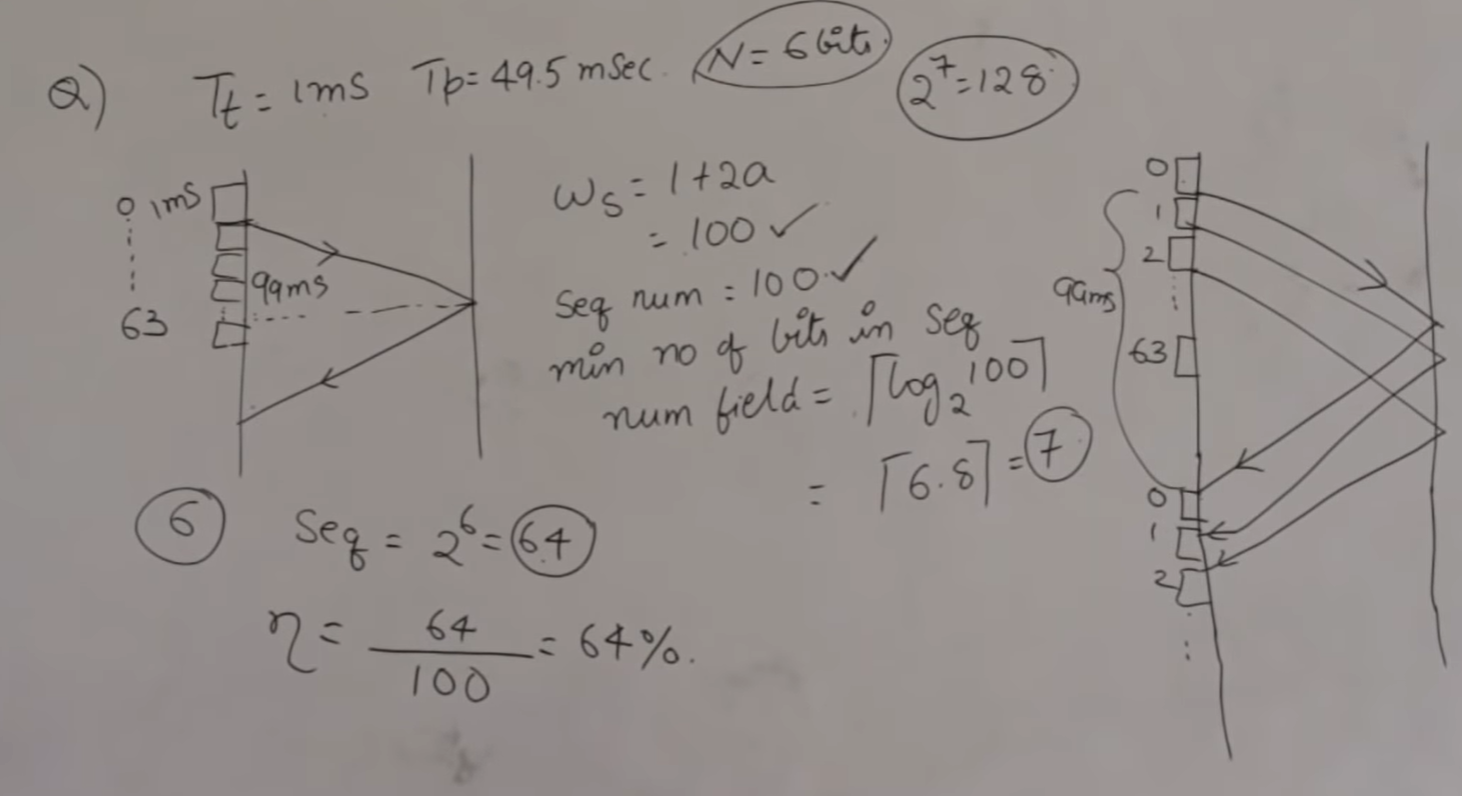 Q) Tt = 1ms Tp = 49.5 mSec. N = 6 bits. 2^7 = 128
0 1ms
99ms
63
ws = 1 + 2a
= 100 ✓
Seq num = 100 ✓
min no of bits in seq
num field = ⌈log₂ 100⌉
= ⌈6.8⌉ = 7
6 Seq = 2^6 = 64
η = 64/100 = 64%.
0
1
2
99ms
63
0
1
2